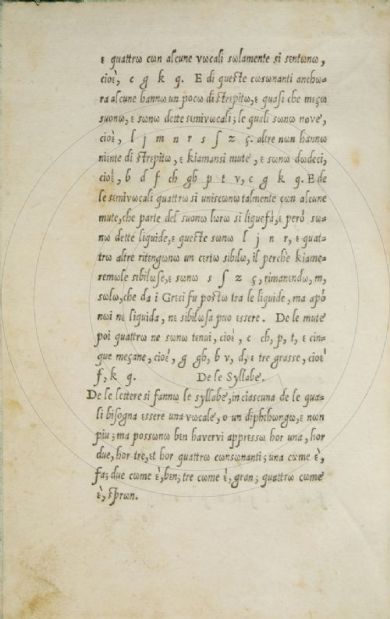 ε quattrω cωn alcune vωcali sωlamente si sentωnω,
ciοὲ, c g k q. E di queste cωnsωnanti anchω=
ra alcune hannω un pocω di strepitω, ε quaſi che meçω
suonω, ε sωnω dette semivωcali; le quali sωnω nove,
ciοὲ, l j m n r s ſ z ç. altre nωn hannω
niente di strepitω, ε kiamansi mute, ε sωnω dωdeci,
ciοὲ, b d f ch gh p t v, c g k q. E de
le semivωcali quattrω si uniscωnω talmente cωn alcune
mute, che parte del suonω lωrω si liquefà, ε però sω=
nω dette liquide, ε queste sωnω l j n r, ε quat=
trω altre ritengωnω un certω sibilω, il perchè kiame=
remωle sibilωse, ε sωnω s ſ z ç, rimanendω, m,
sωlω, che da i Grεci fu pοstω tra le liquide, ma apò
nωi nε liquida, nε sibilωsa puo essere. De le mute
pοi quattrω ne sωnω tenui, ciοὲ, c ch, p, t, ε cin=
que meçane, ciοὲ, g gh, b v, d, ε tre grosse, ciοὲ
f, k q. De le Syllabe.
De le lettere si fannω le syllabe, in ciascuna de le qua=
li biſogna essere una vωcale, o un diphthongω, ε nωn
piu; ma possωnω ben havervi appressω hor una, hor
due, hor tre, et hor quattrω cωnsωnanti; una cωme ὲ,
fa; due cωme ὲ, ben; tre cωme ὲ, gran; quattrω cωme
ὲ, sprωn.